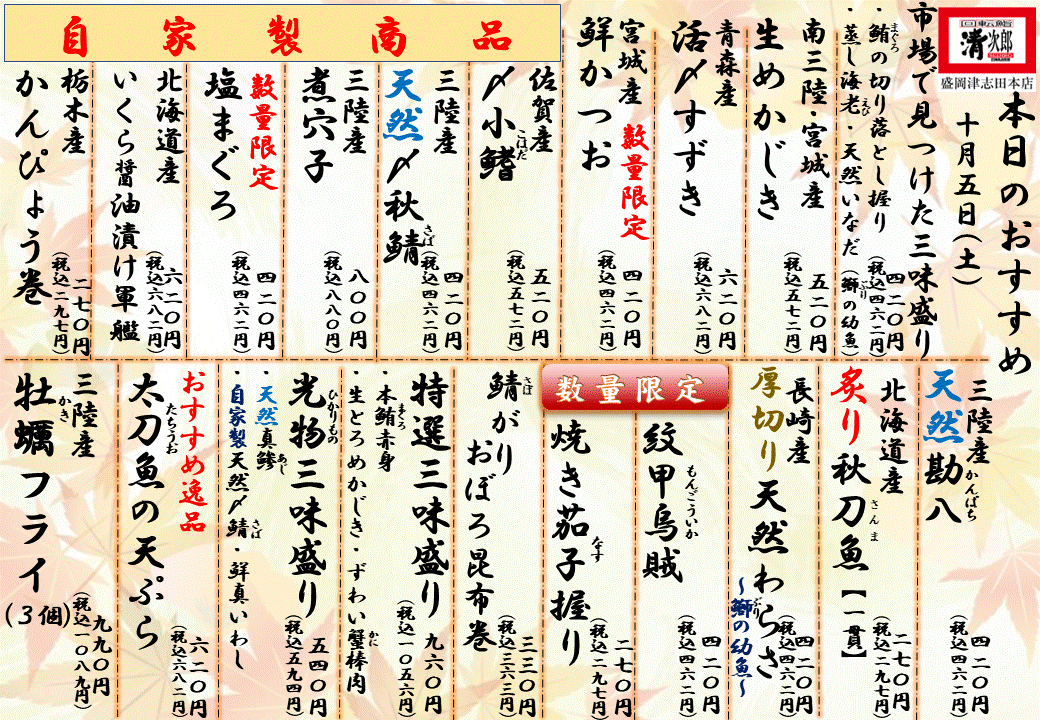 回転鮨
清次郎
盛岡津志田本店
本日のおすすめ
十月五日(土)
市場で見つけた三味盛り
・鮪の切り落とし握り
まぐろ
・蒸し海老・天然いなだ(鰤の幼魚)
えび
ぶり
四二〇円
(税込四六二円)
南三陸・宮城産
生めかじき
五二〇円
(税込五七二円)
青森産
活〆すずき
六二〇円
(税込六八二円)
宮城産
数量限定
鮮かつお
四二〇円
(税込四六二円)
自家製商品
佐賀産
〆小鰭
こはだ
五二〇円
(税込五七二円)
三陸産
天然〆秋鯖
さば
四二〇円
(税込四六二円)
三陸産
煮穴子
八〇〇円
(税込八八〇円)
数量限定
塩まぐろ
四二〇円
(税込四六二円)
北海道産
いくら醤油漬け軍艦
六二〇円
(税込六八二円)
栃木産
かんぴょう巻
二七〇円
(税込二九七円)
三陸産
天然勘八
かんぱち
四二〇円
(税込四六二円)
北海道産
炙り秋刀魚【一貫】
さんま
二七〇円
(税込二九七円)
長崎産
厚切り天然わらさ
~鰤の幼魚~
ぶり
四二〇円
(税込四六二円)
数量限定
紋甲烏賊
もんごういか
四二〇円
(税込四六二円)
焼き茄子握り
なす
二七〇円
(税込二九七円)
鯖がり
さば
おぼろ昆布巻
三三〇円
(税込三六三円)
特選三味盛り
・本鮪赤身
まぐろ
・生とろめかじき・ずわい蟹棒肉
かに
九六〇円
(税込一〇五六円)
光物三味盛り
ひかりもの
・天然真鯵
あじ
・自家製天然〆鯖・鮮真いわし
さば
五四〇円
(税込五九四円)
おすすめ逸品
太刀魚の天ぷら
たちうお
六二〇円
(税込六八二円)
三陸産
牡蠣フライ(3個)
かき
九九〇円
(税込一〇八九円)